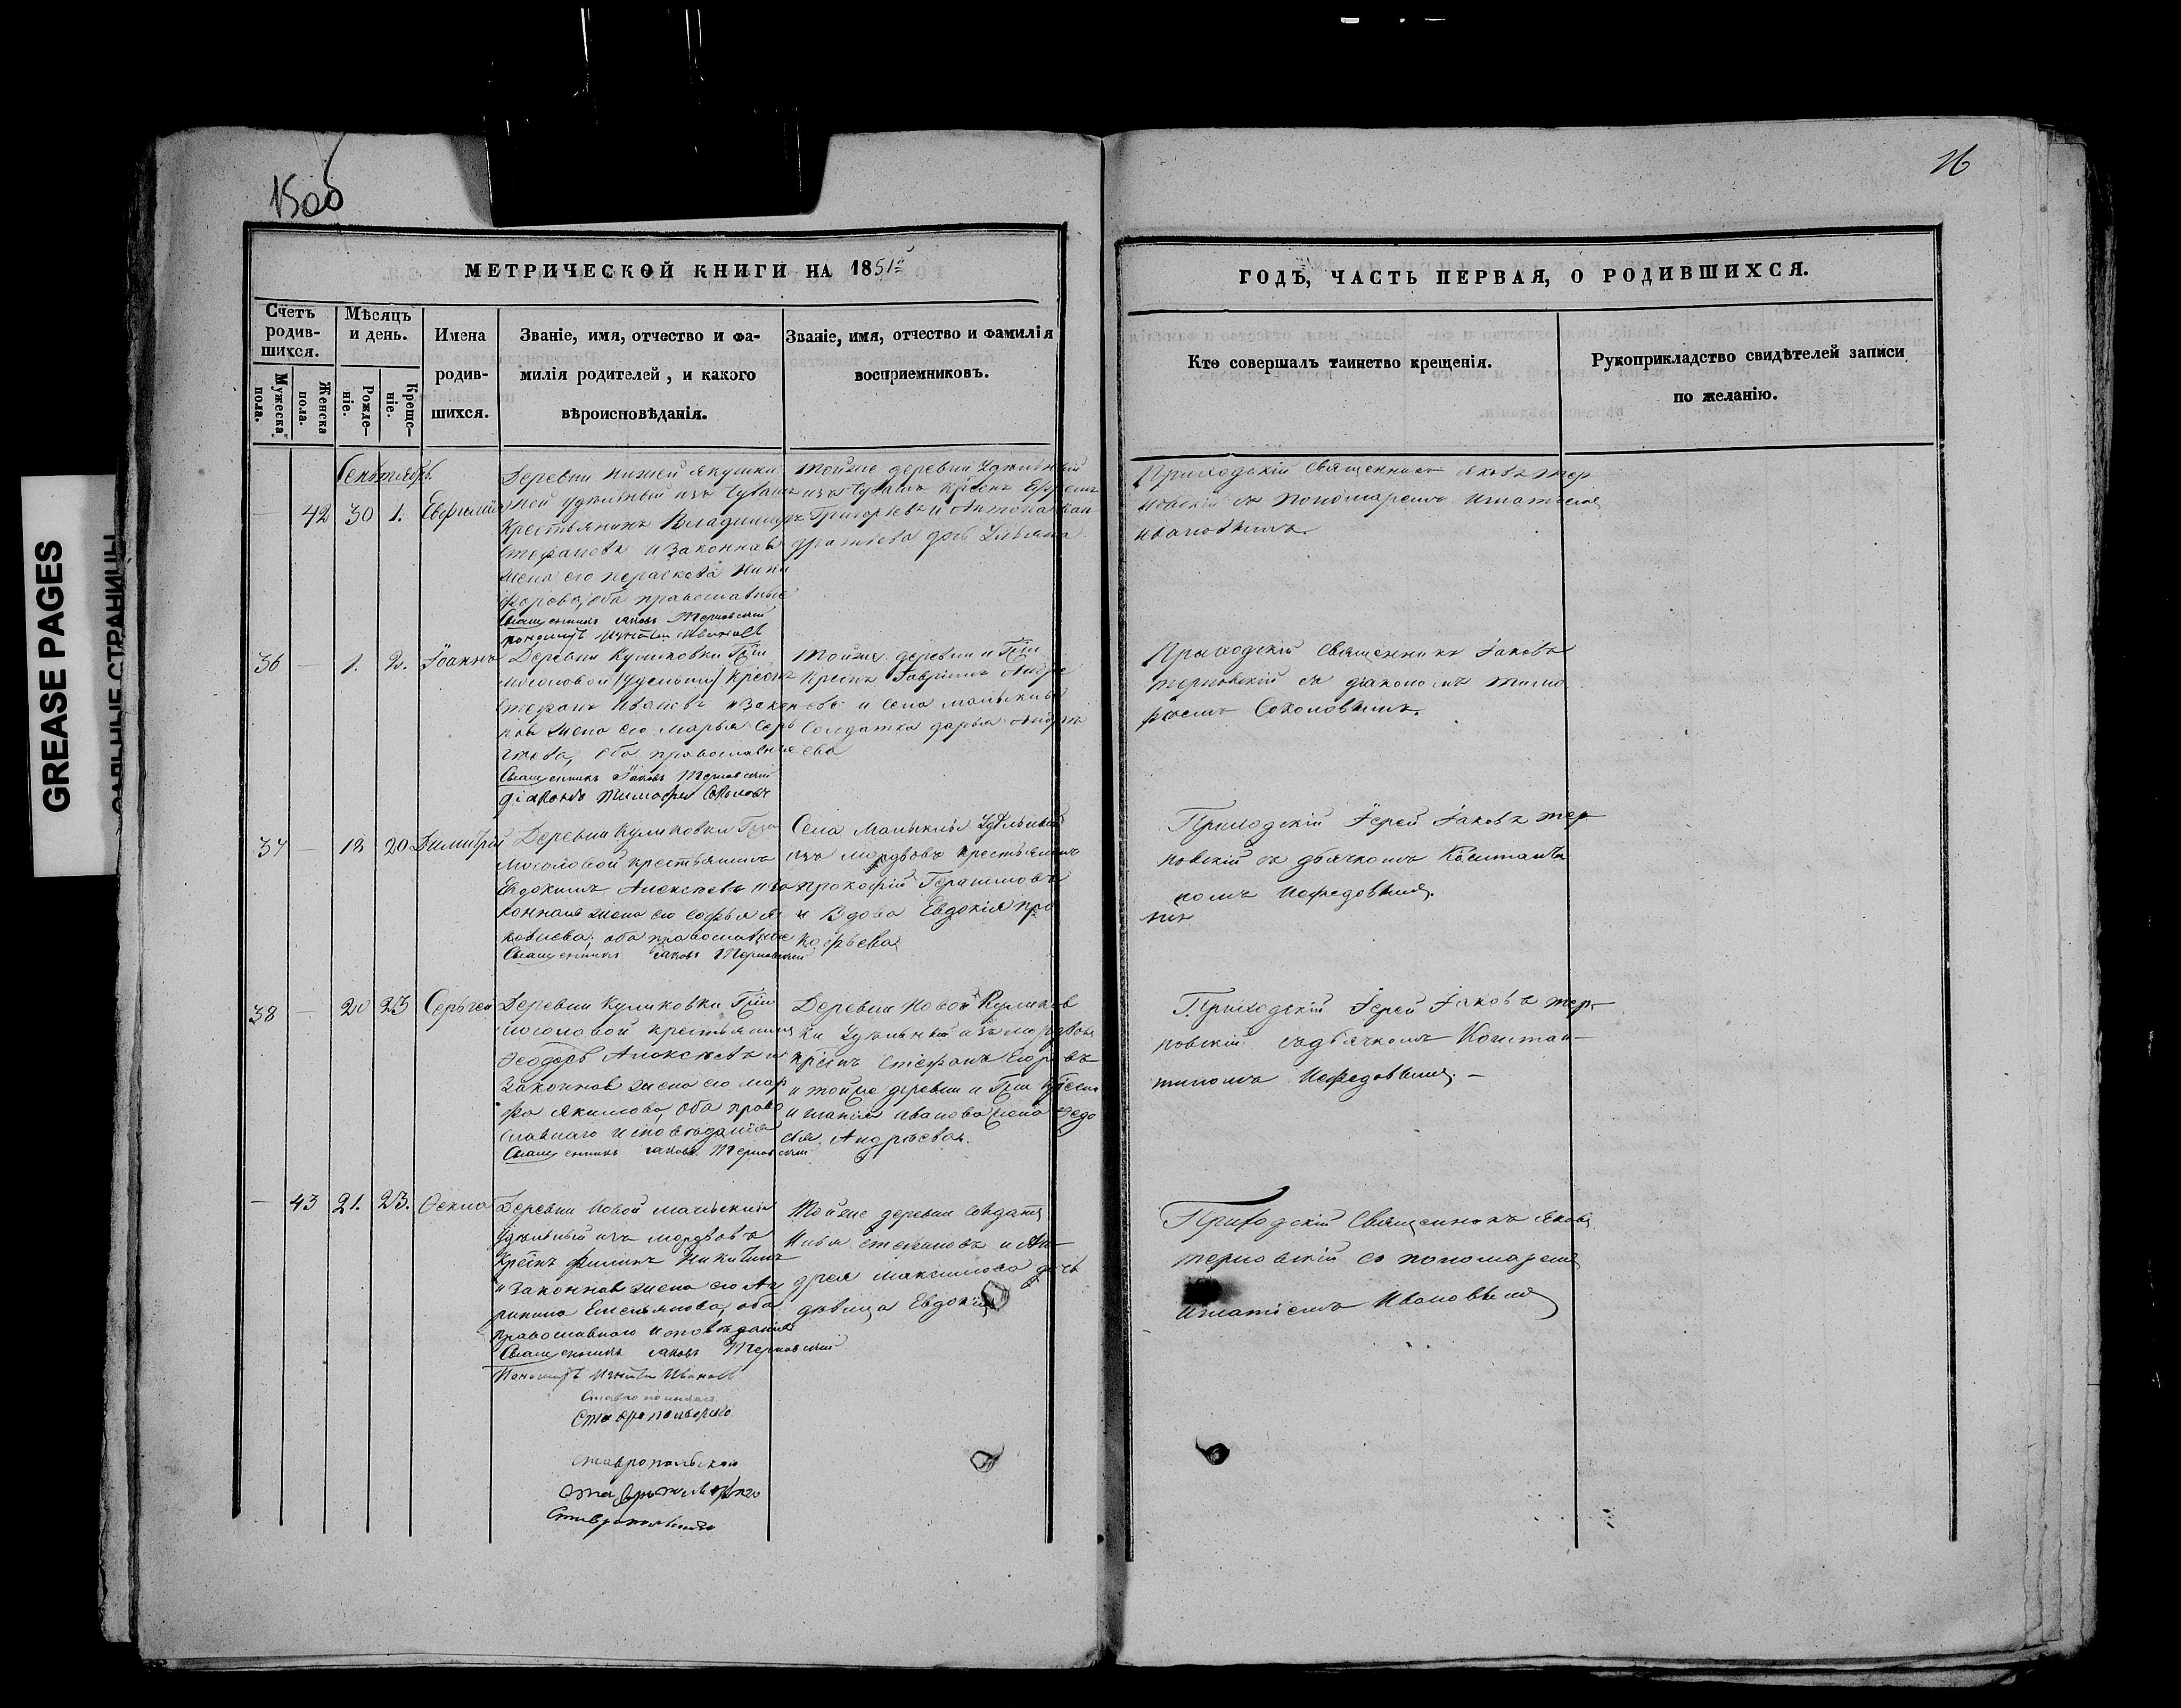 15об
16
МЕТРИЧЕСКОЙ КНИГИ НА 1851й
Счетъ родив-шихся.
Мужеска пола.
Женска пола.
Мѣсяцъ и день.
Рожде-ніе.
Креще-ніе.
Имена родив-шихся.
Званіе, имя, отчество и фа-
милія родителей, и какого
вѣроисповѣданія.
Званіе, имя, отчество и фамилія
восприемниковъ.
ГОДЪ, ЧАСТЬ ПЕРВАЯ, О РОДИВШИХСЯ.
Кто совершалъ таинство крещенія.
Рукоприкладство свидѣтелей записи
по желанію.
Сентябрь.
— 42 30 1.
Деревни Нижней Якушки
ной удѣльный изъ Чувашъ
Крестьянинъ Владимиръ
Стефановъ и законная
жена его Параскева Ники
форова, оба православные
Священникъ Іаковъ Терновскій
пономарь Игнатій Ивановъ
тойже деревни Удѣльный
изъ Чувашъ Крест Ефремъ
Григорьевъ и Антона Кон
дратьева дочь Ульяна
Приходскій Священникъ Яковъ Тер
новскій съ пономаремъ Игнатіемъ
Ивановымъ.
36 — 1. 2. Іоаннъ
Деревни Куликовки
Стефанъ Ивановъ и закон
ная жена его Марья Сер
гѣева, оба православные
Священникъ Іаковъ Терновскій
діаконъ Тимофей Соколовъ
Тойже деревни
Гавріилъ Андре
евъ и села
Солдатка Дарья Андре
ева
Приходскій Священникъ Іаковъ
Терновскій съ діакономъ Тимо
фѣемъ Соколовымъ.
37 — 18 20 Димитрій
Деревни Куликовки
крестьянинъ
Евдокимъ Алексѣевъ и за
конная жена его Софья Я
ковлева, оба православные
Священникъ Іаковъ Терновскій
Села Маныклы Удѣльный
изъ мордовъ крестьянинъ
Прокофій Герасимовъ
и Вдова Евдокія Про
кофьева
Приходскій Іерей Іаковъ Тер
новскій съ дьячкомъ Констанъти
номъ Нефедовымъ.
38 — 20 23 Сергей
Деревни Куликовки
крестьянинъ
Ѳеодоръ Алексѣевъ и
законная жена его Мар
фа Якимова, оба право
славнаго исповѣданія
Священникъ Іаковъ Терновскій
Деревни Новой Куликов
ки Удѣльный изъ мордвовъ
Стефанъ Егоровъ
и тойже деревни
Иванова жена Ѳедо
сья Андрѣева.
Приходскій Іерей Іаковъ Тер-
новскій съ дьячкомъ Констан-
тиномъ Нефедовымъ. —
— 43 21. 23. Ѳекла
Деревни Новой
Удѣльный изъ мордвовъ
Филипъ Никитинъ
и законная жена его
Емельянова, оба
православнаго исповѣданія
Священникъ Іаковъ Терновскій
Пономарь Игнатій Ивановъ
Тойже деревни Солдатъ
Илья Степановъ и Ан-
дрея Максимова дочь
дѣвица Евдокія
Приходскій Священникъ Яковъ
Терновскій съ пономаремъ
Игнатіемъ Ивановымъ
Ставропольскаго
Ставропольскаго
Ставропольскаго
Ставропольскаго
Ставропольскаго
GREASE PAGES
САЛЬНЫЕ СТРАНИЦЫ